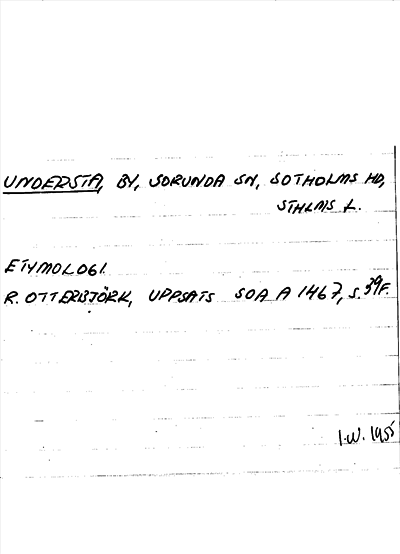 UNDERSTA, BY, SORUNDA SN, SOTHOLMS HD,
STHLMS L.
ETYMOLOGI.
R. OTTERBJÖRK, UPPSATS SOA A 1467, S. 39F.
I.W. 1955